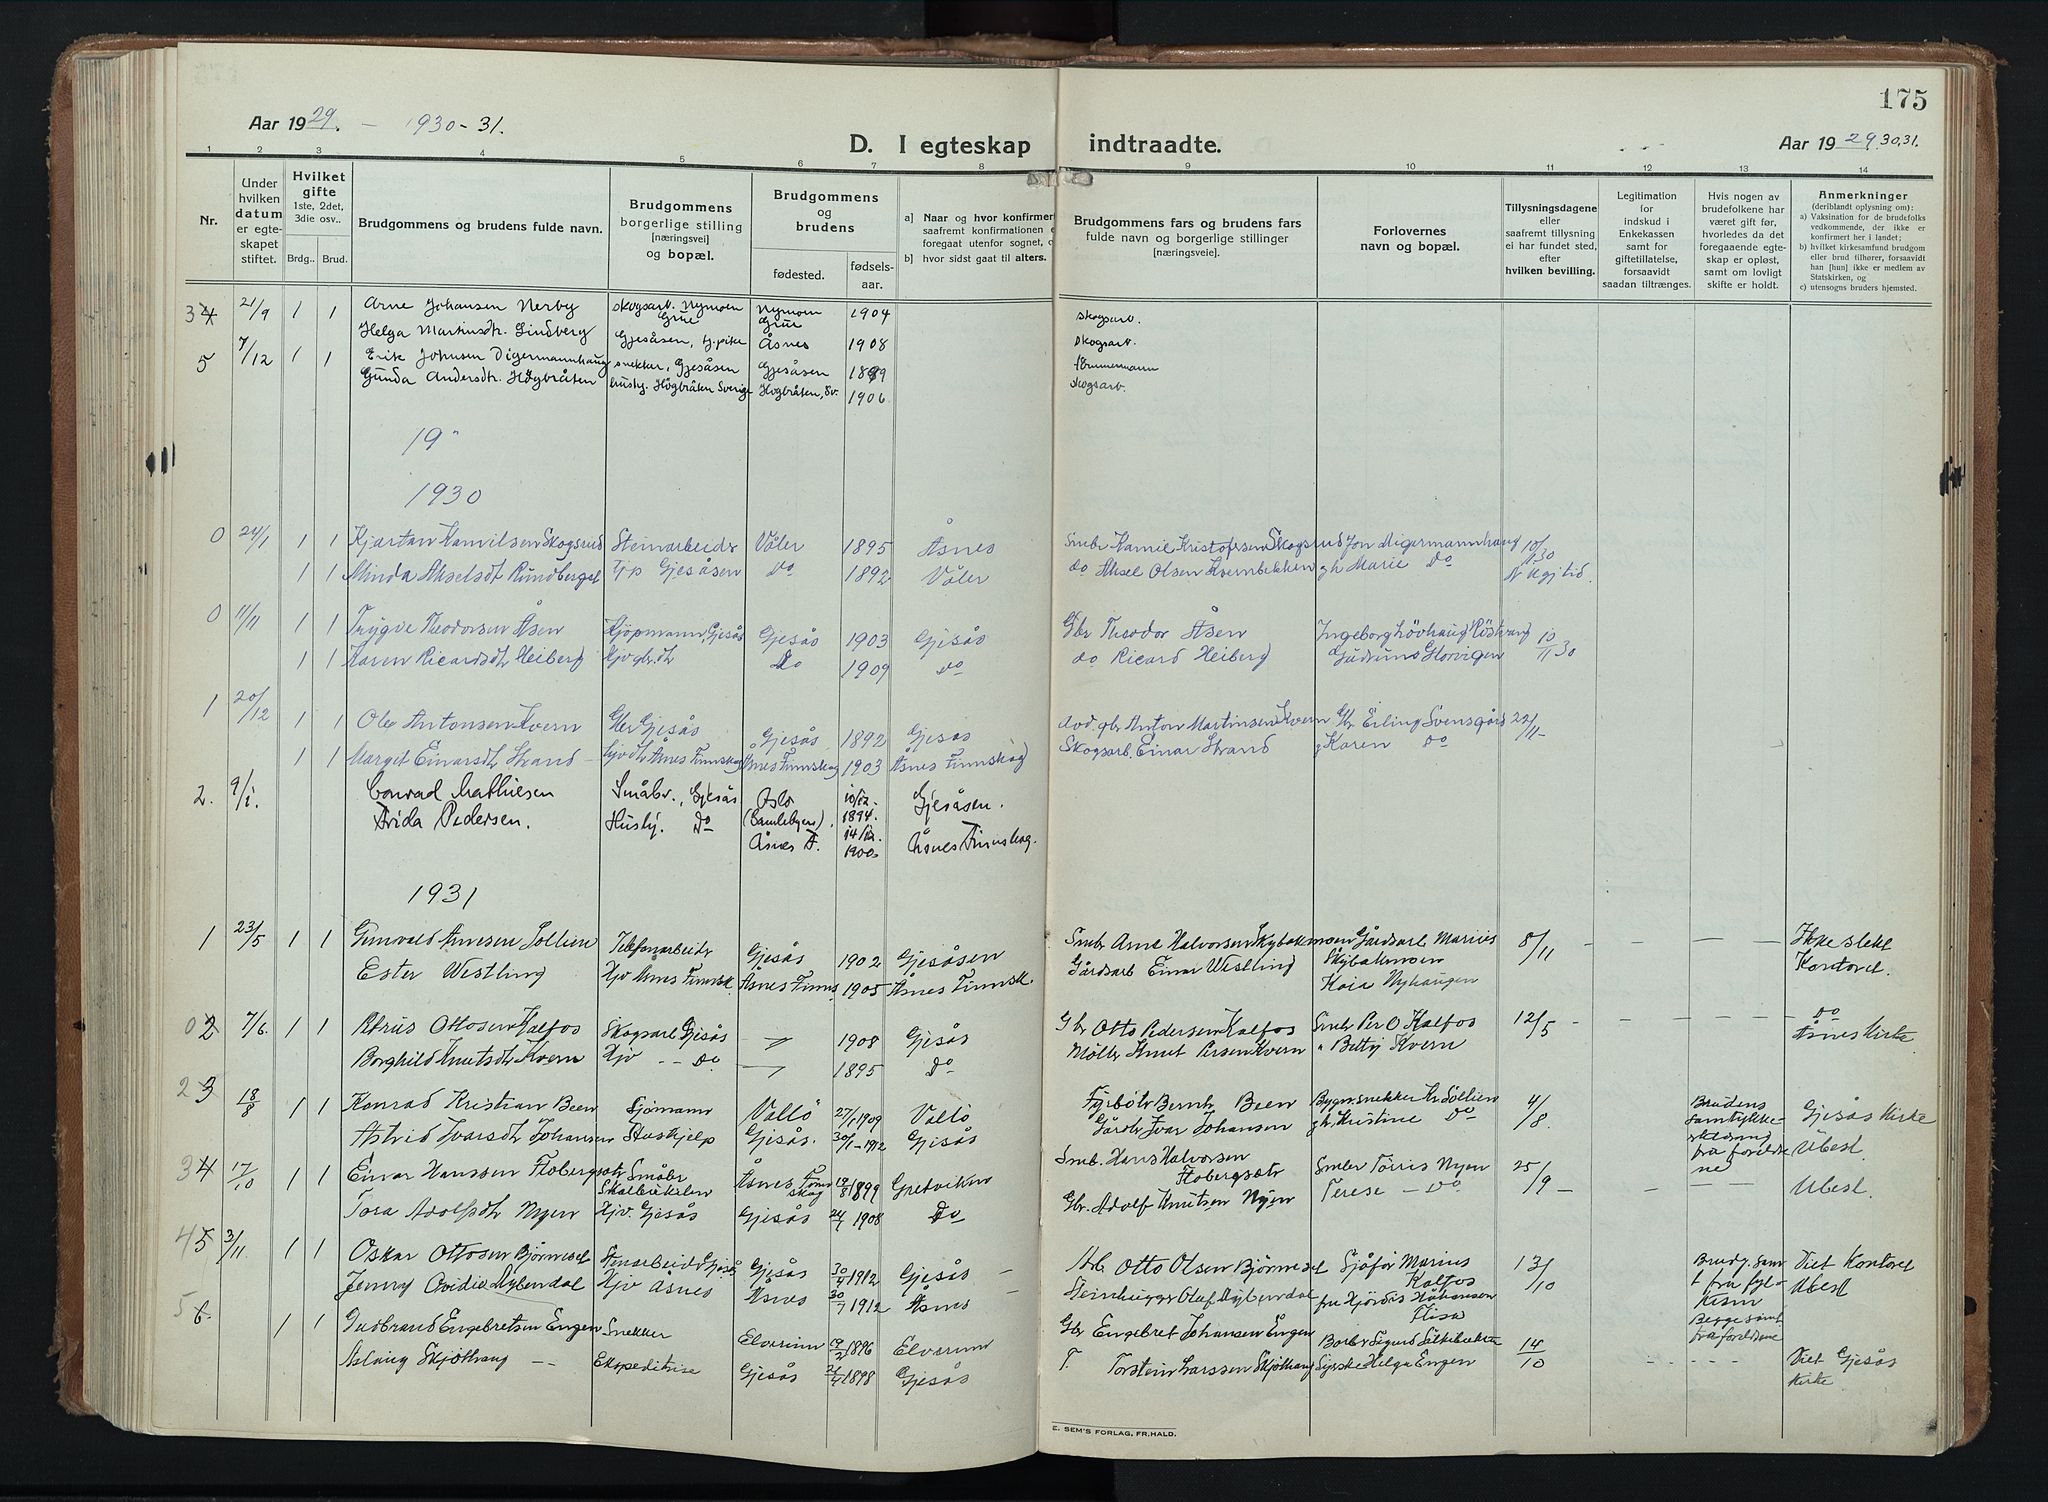 175
Aar 1929. - 1930-31.
D. I egteskap indtraadte.
Aar 1929 30,31.
1 2 3 4 5 6 7 8 9 10 11 12 13 14
Nr.
Under hvilken datum er egteskapet stiftet.
Hvilket gifte 1ste, 2det, 3die osv..
Brdg.. Brud.
Brudgommens og brudens fulde navn.
Brudgommens borgerlige stilling [næringsvei] og bopæl.
Brudgommens og brudens
fødested. fødsels-aar.
a] Naar og hvor konfirmert saafremt konfirmationen foregaat utenfor sognet,
b] hvor sidst gaat til alters.
Brudgommens fars og brudens fars fulde navn og borgerlige stillinger [næringsveie].
Forlovernes navn og bopæl.
Tillysningsdagene eller saafremt tillysning ei har fundet sted, efter hvilken bevilling.
Legitimation for indskud i Enkekassen samt for giftetillatelse, forsaavidt saadan tiltrænges.
Hvis nogen av brudefolkene har været gift før, hvorledes da det foregaaende egteskap er opløst, samt om lovligt skifte er holdt.
Anmerkninger (deriblandt oplysning om):
a) Vaksination for de brudefolks vedkommende, der ikke er konfirmert her i landet;
b) hvilket kirkesamfund brudgom eller brud tilhører, forsaavidt han [hun] ikke er medlem av Statskirken, og
c) utensogns bruders hjemsted.
21/9 1 1 Arne Johansen Nerby skogsarb. Nymoen Grue Nymoen Grue 1904 skogsarb.
Helga Martinsdtr. Lindberg Gjesåsen, tj.pike Åsnes 1908 skogsarb.
5 7/12 1 1 Erik Johnsen Digermannhaug snekker, Gjesåsen Gjesåsen 1899 tømmermann
Gunda Andersdtr. Högbråten husbj. Högbråten Sverige Högbråten, Sv. 1906 skogsarb.
19
1930
0 24/1 1 1 Kjartan Kamilsen Skogsrud Steinarbeidr Våler 1895 Åsnes Smbr Kamil Kristofersen Skogsrud Jon Digermannhaug 10/1 30
1 1 Minda Akselsdt Rundberget Tjp Gjesåsen Do 1892 Våler do Aksel Olsen Kvernbekken gh Marie Do
0 11/11 1 1 Trygve Theodorsen Åsen Kjøpmann, Gjesås Gjesås 1903 Gjesås Gbr Theodor Åsen Ingeborg Lövhaug
1 1 Karen Ricardsdt Heiberg Do 1909 Do do Ricard Heiberg 10/11 30
1 20/12 1 1 Ole Antonsen Kvern Gbr Gjesås Gjesås 1892 Gjesås Anton Martinsen Kvern Gbr Erling Svensgård 22/11-
1 1 Margit Einarsdt Strand Åsnes Finnskog Åsnes Finnskog 1903 Åsnes Finnskog Skogsarb. Einar Strand Karen Do
2. 9/1. Conrad Mathiesen Småbr., Gjesås Oslo 10/12. 1894. Gjesåsen.
Frida Pedersen. Husbj. Do (Gamlebyen). Åsnes F. 1900 Åsnes Finnskog.
1931
1 23/5 1 1 Gunvald Arnesen Sollien Telefonarbeidr Gjesås 1902 Gjesåsen Smbr Arne Halvorsen Skybakmoen Gårdsarb Marius Skybakmoen 8/11 - - - Ikke slekt Kontoret.
Ester Westling Hjv Åsnes Finnsk. Åsnes Finns. 1905 Åsnes Finnsk. Gårdsarb Einar Westling Kaia Nyhaugen
0 2 7/6. 1 1 Petrus Ottosen Kalfos Skogsarb Gjesås 1908 Gjesås Gbr Otto Pedersen Kalfos Smbr Per O Kalfos 12/5 - - - do Åsnes Kirke
Borghild Knutsdt Kvern Hjv - Do 1895 Do Møller Knut Persen Kvern " Betty Kvern
2 3 18/8 1 1 Konrad Kristian Been Sjömann Vallö 27/1 1909 Vallö Fyrbötr Bernh Been Bygn.snekker Kr Sollien 4/8. Brudens samtykke fra foreldrene Gjesås Kirke
Astrid Ivarsdt Johansen Hushjelp Gjesås. 30/1-1912 Gjesås Gårdbr Ivar Johansen Kristine Do Ubesl.
3 4 17/10 1 1 Einar Hanssen Flobergsætr Småbr Åsnes Finnskog 1899 Smb. Hans Halvorsen Flobergsætr Smbr Törris Nyen 25/9 - - - - Ubesl.
Tora Adolfsdt Nyen Hjv. Gjesås Gjesås 1908 Do Gbr. Adolf Knutsen Nyen Terese - Do
4 5 3/11. 1 1 Oskar Ottosen Björnesет Stenarbeidr Gjesås Gjesås 1912 Gjesås Otto Olsen Björneset Sjåför Marius Kalfos 13/10 Viet Kontoret
Jenny Ovidie Myrendal Hjv Åsnes Åsnes 30/7 1912 Åsnes Steinhugger Olaf fru Hjördis Håkansen Flisa Ubesl
5 6. 1 1 Gudbrand Engebretsen Engen Snekker Elverum 1896 Elverum Gbr Engebret Johansen Engen Sigurd 14/10 Begge samt fra foreldrene
Aslaug Skjöthaug - - Ekspeditrise Gjesås 1898 Gjesås T. Torstein Larssen Skjöthaug Helga Engen - - - - Viet Gjesås Kirke
E. SEM'S FORLAG, FR.HALD.